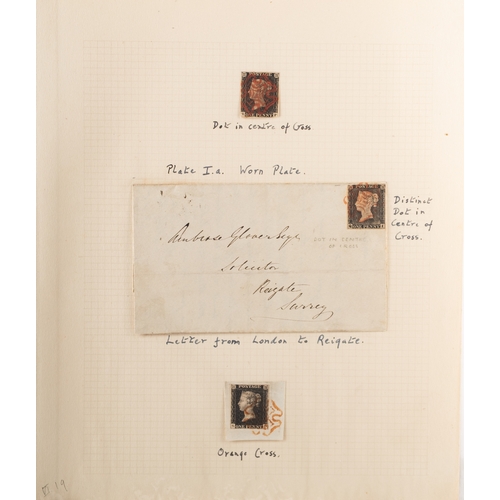 POSTAGE
ONE PENNY
Dot in centre of Cross
Plate I.a. Worn Plate.
POSTAGE
ONE PENNY
Distinct
Dot in
Centre of
Cross.
Ambrose Glover Esqr
DOT IN CENTRE
OF CROSS
Solicitor
Reigate
Surrey
Letter from London to Reigate.
POSTAGE
ONE PENNY
Orange Cross.
19